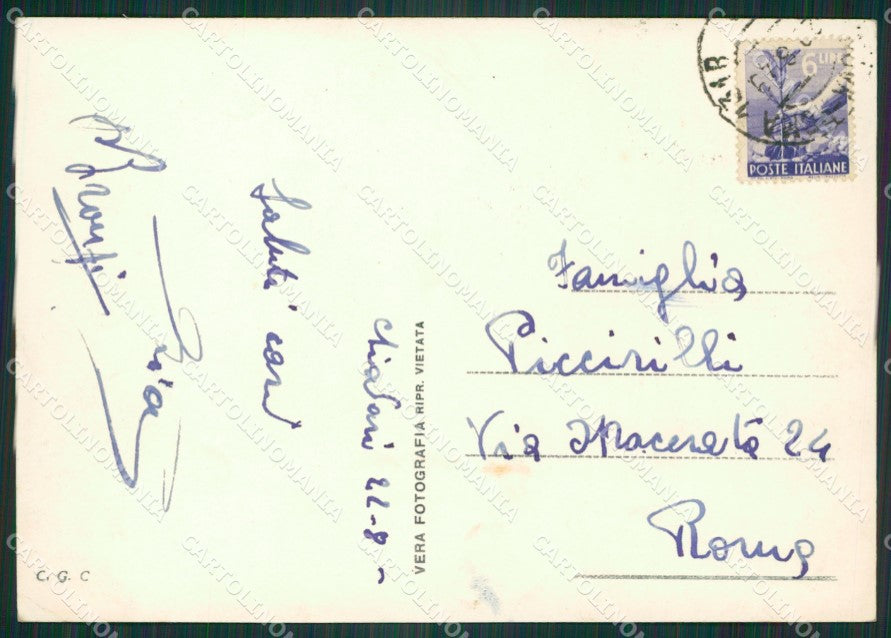 Chiavari 22-8-
Saluti cari
6 LIRE
POSTE ITALIANE
Famiglia
Piccirilli
Via Macerata 24
Roma
VERA FOTOGRAFIA RIPR. VIETATA
C. G. C
CARTOLINOMANIA